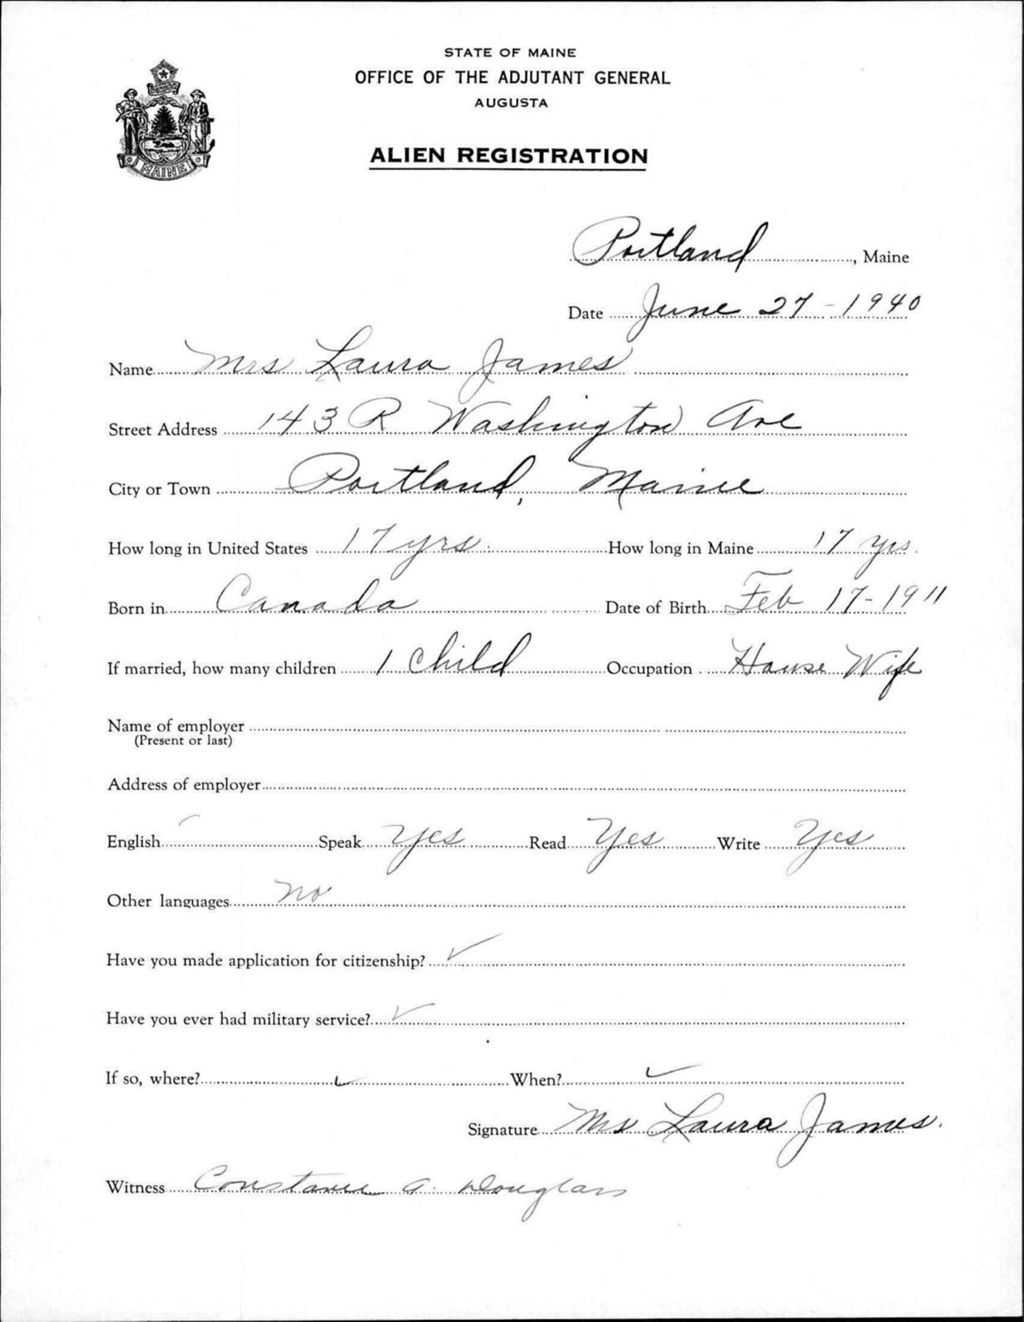 STATE OF MAINE
OFFICE OF THE ADJUTANT GENERAL
AUGUSTA
ALIEN REGISTRATION
MAINE
Portland, Maine
Date June 27-1940
Name Mrs Laura James
Street Address 143 R Washington Ave
City or Town Portland, Maine
How long in United States 17 yrs. How long in Maine 17 yrs.
Born in Canada Date of Birth Feb 17-1911
If married, how many children 1 child Occupation House Wife
Name of employer
(Present or last)
Address of employer
English Speak Yes Read Yes Write Yes
Other languages no
Have you made application for citizenship? ✓
Have you ever had military service? ✓
If so, where? ✓ When? ✓
Signature Mrs Laura James.
Witness Constance A. Douglass